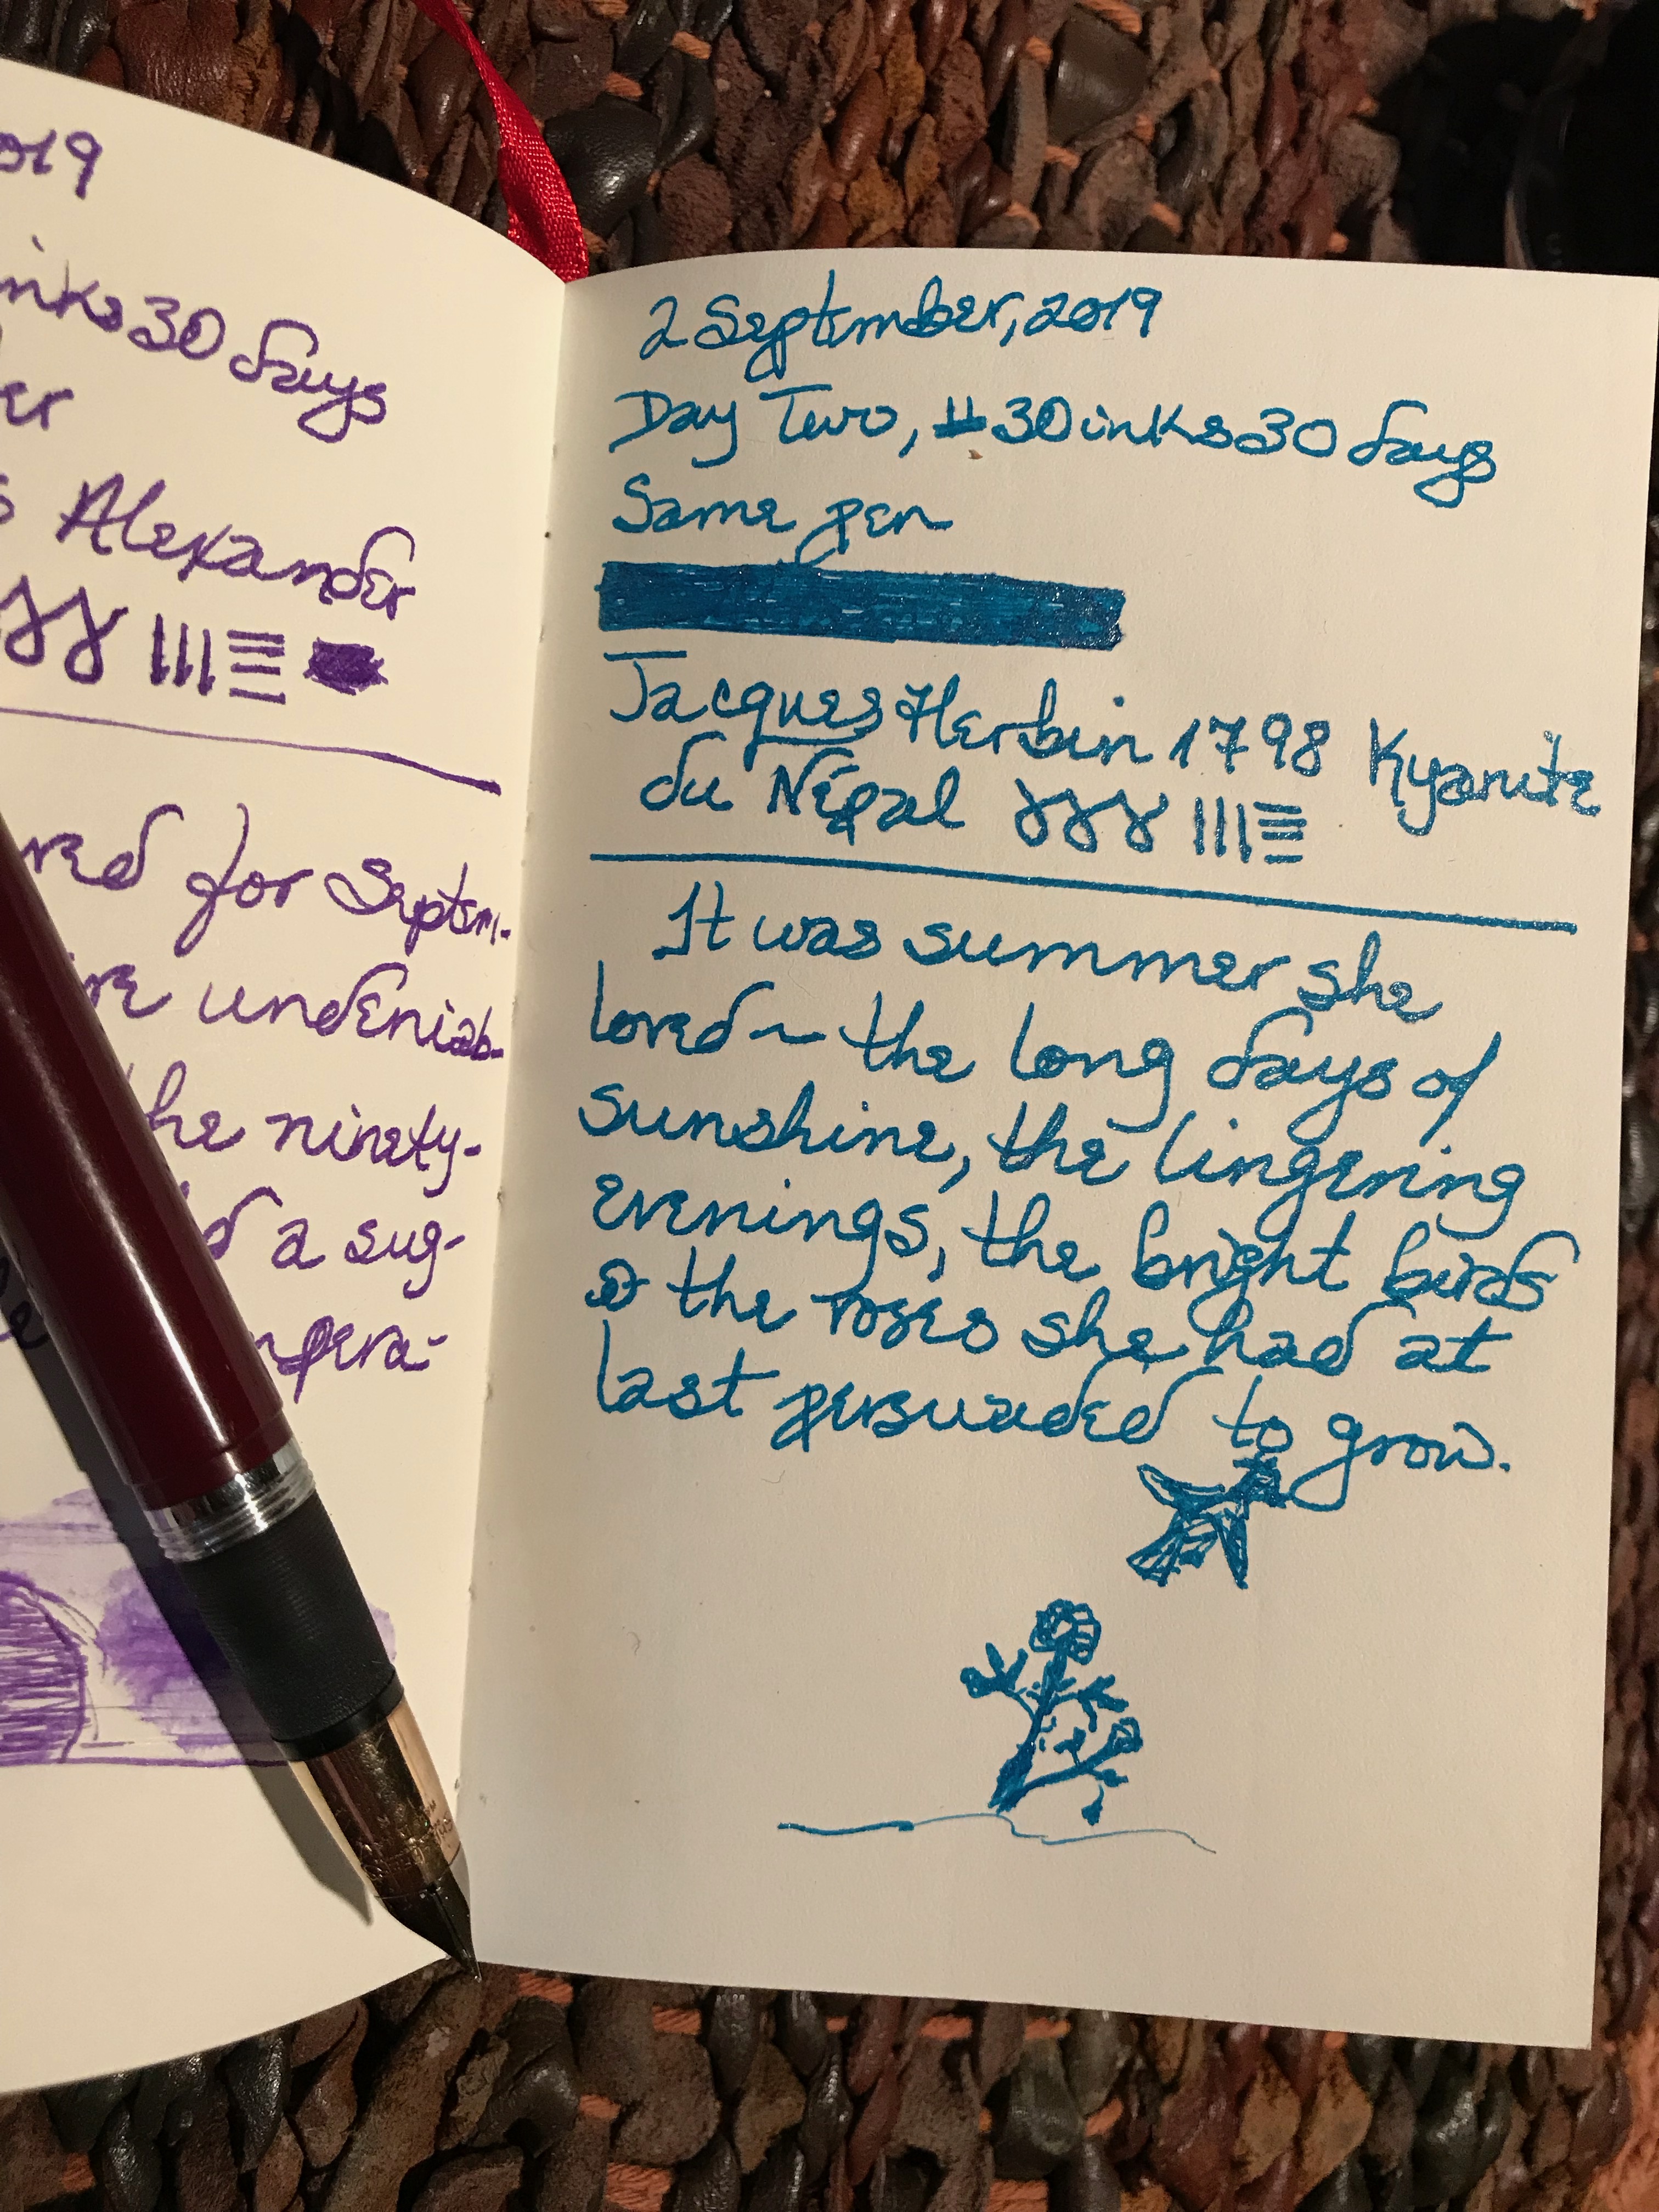 2019
inks30days
er
s Alexander
red for Septem-
undeniab-
the ninety-
d a sug-
mpera-
2 September, 2019
Day Two, #30inks30days
Same pen
Jacques Herbin 1798 Kyanite
du Népal
It was summer she
loved ~ the long days of
sunshine, the lingering
evenings, the bright birds
& the roses she had at
last persuaded to grow.